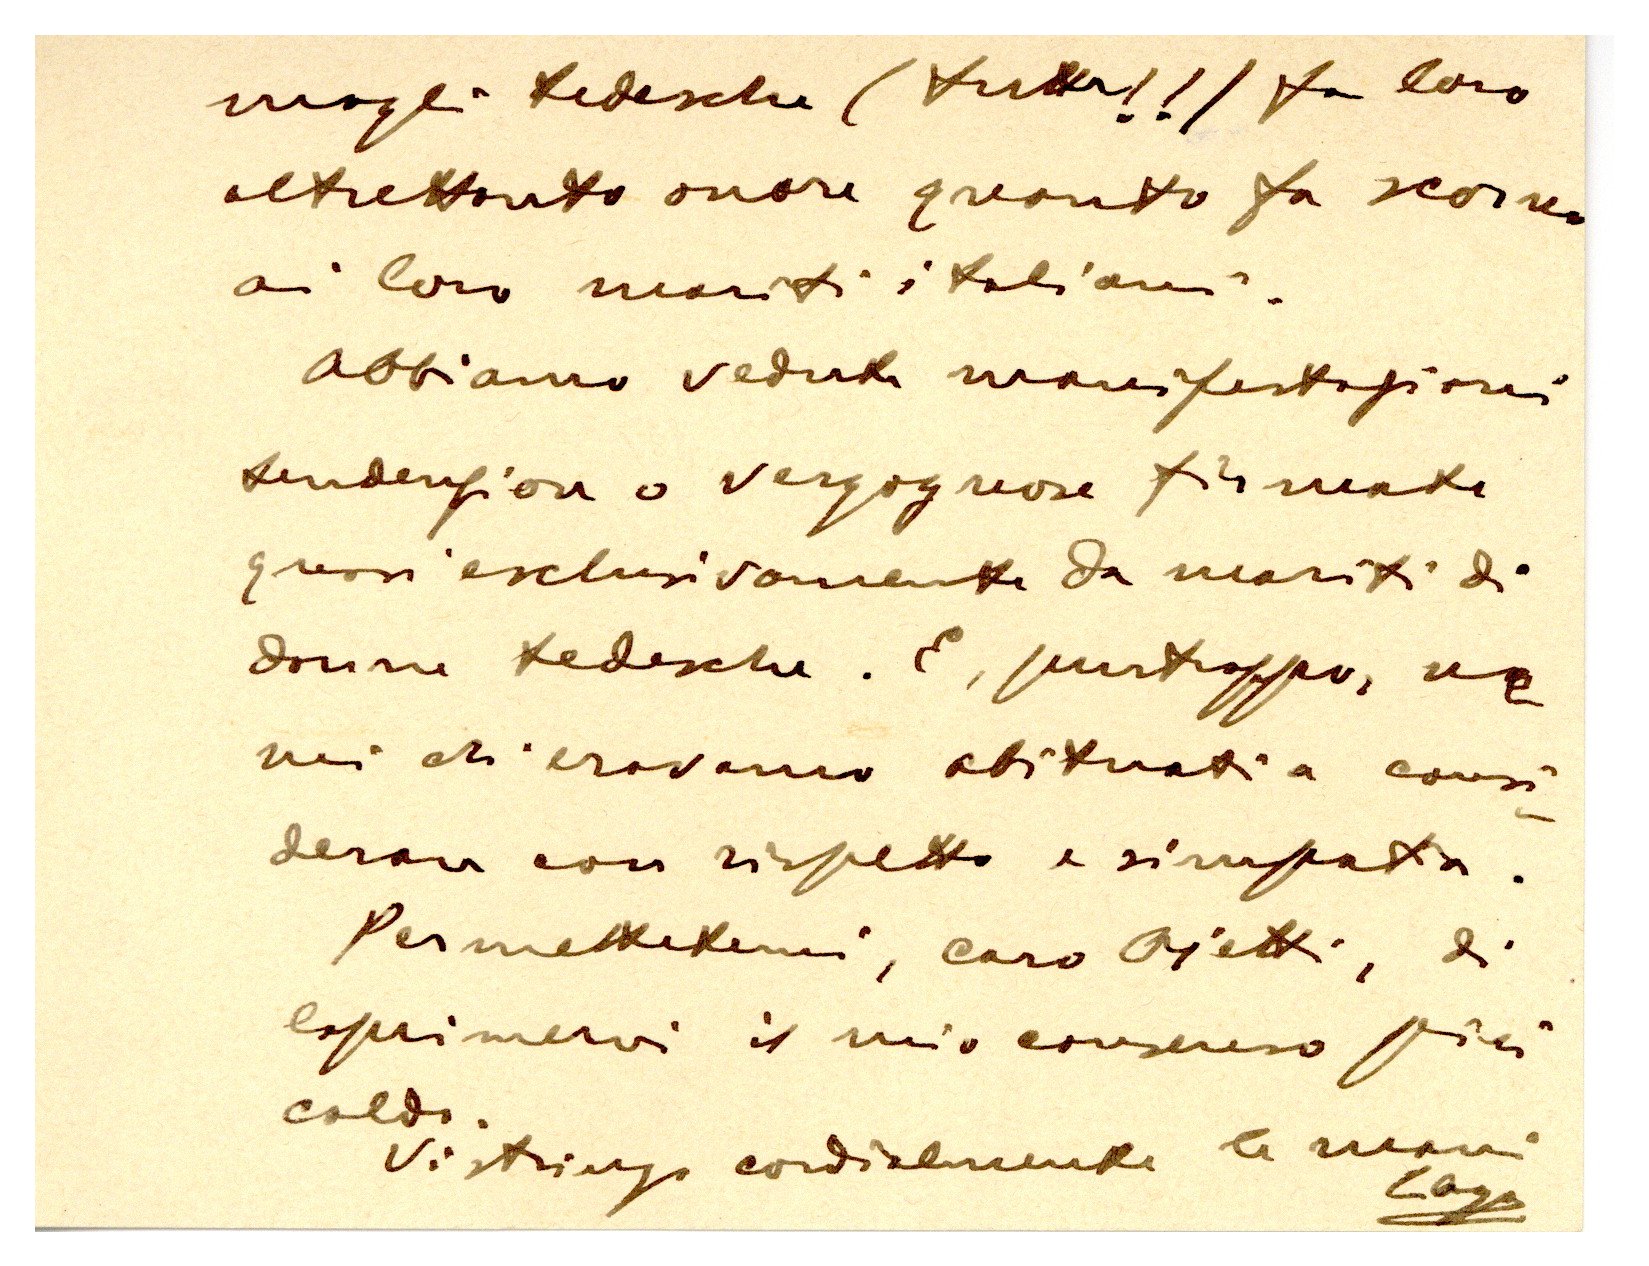 mogli tedesche (tutte!!) fa loro
altrettanto onore quanto fa scorno
ai loro mariti italiani.
Abbiamo vedute manifestazioni
tendenziose o vergognose firmate
quasi esclusivamente da mariti di
donne tedesche. E, purtroppo, uo
mini ch'eravamo abituati a consi
derare con rispetto e simpatia.
Permettetemi, caro Ojetti, di
esprimervi il mio consenso più
caldo.
Vi stringo cordialmente le mani